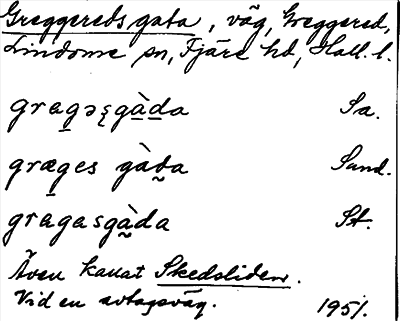 Greggeredsgata, väg, Greggered,
Lindome sn, Fjäre hd, Hall. l.
gragəsgàda Sa.
græges gàda Sand.
gragasgàda St.
Även kallat Skedsliden.
Vid en avtagsväg. 1951.